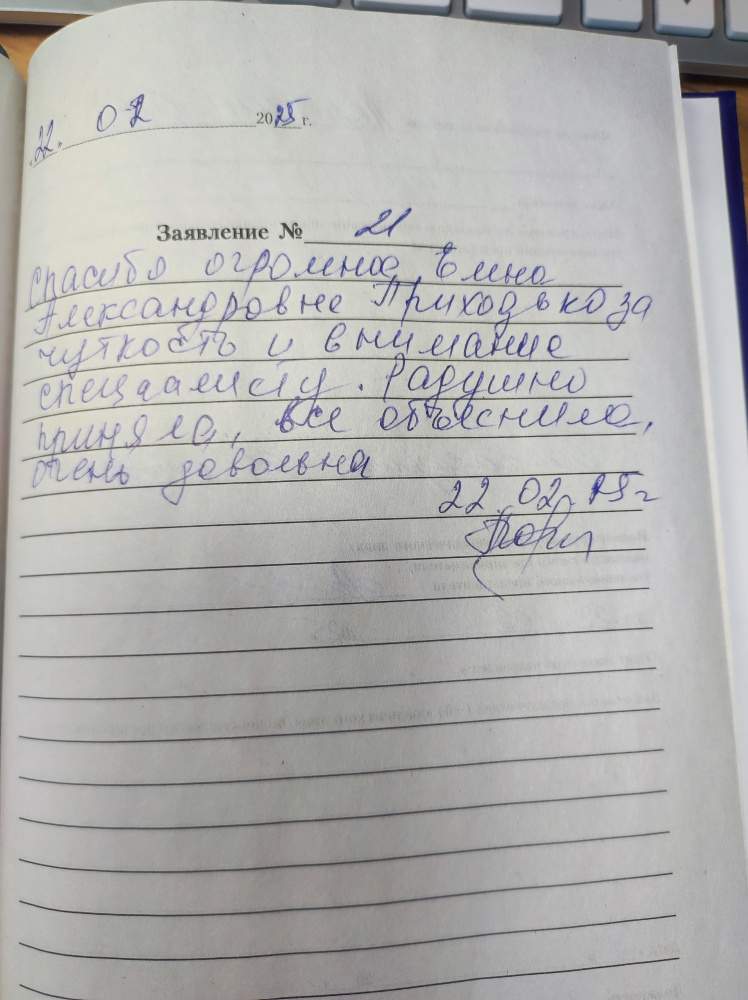 22. 02 2025 г.
Заявление № 21
Спасибо огромное Елена
Александровне Приходько за
чуткость и внимание
специалисту. Радушно
приняла, все объяснила,
очень довольна
22.02.25 г